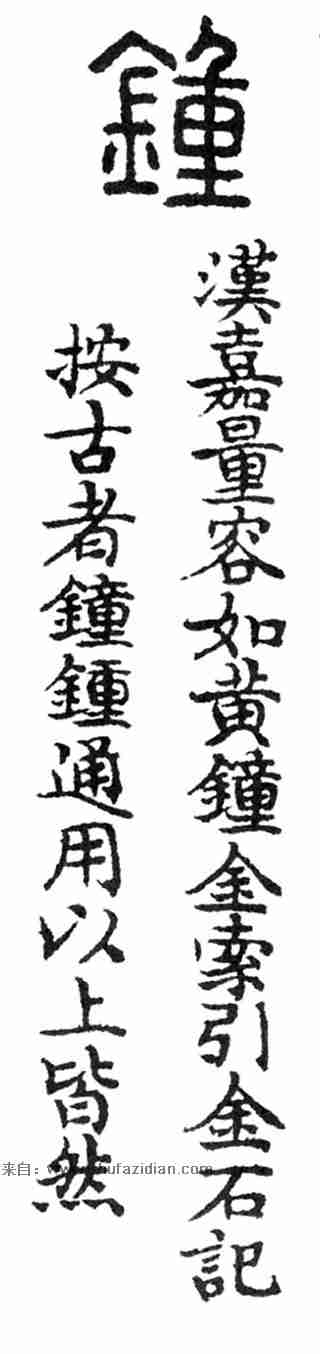 鍾
漢嘉量容如黃鐘金索引金石記
按古者鐘鍾通用以上皆然
来自：www.shufazidian.com